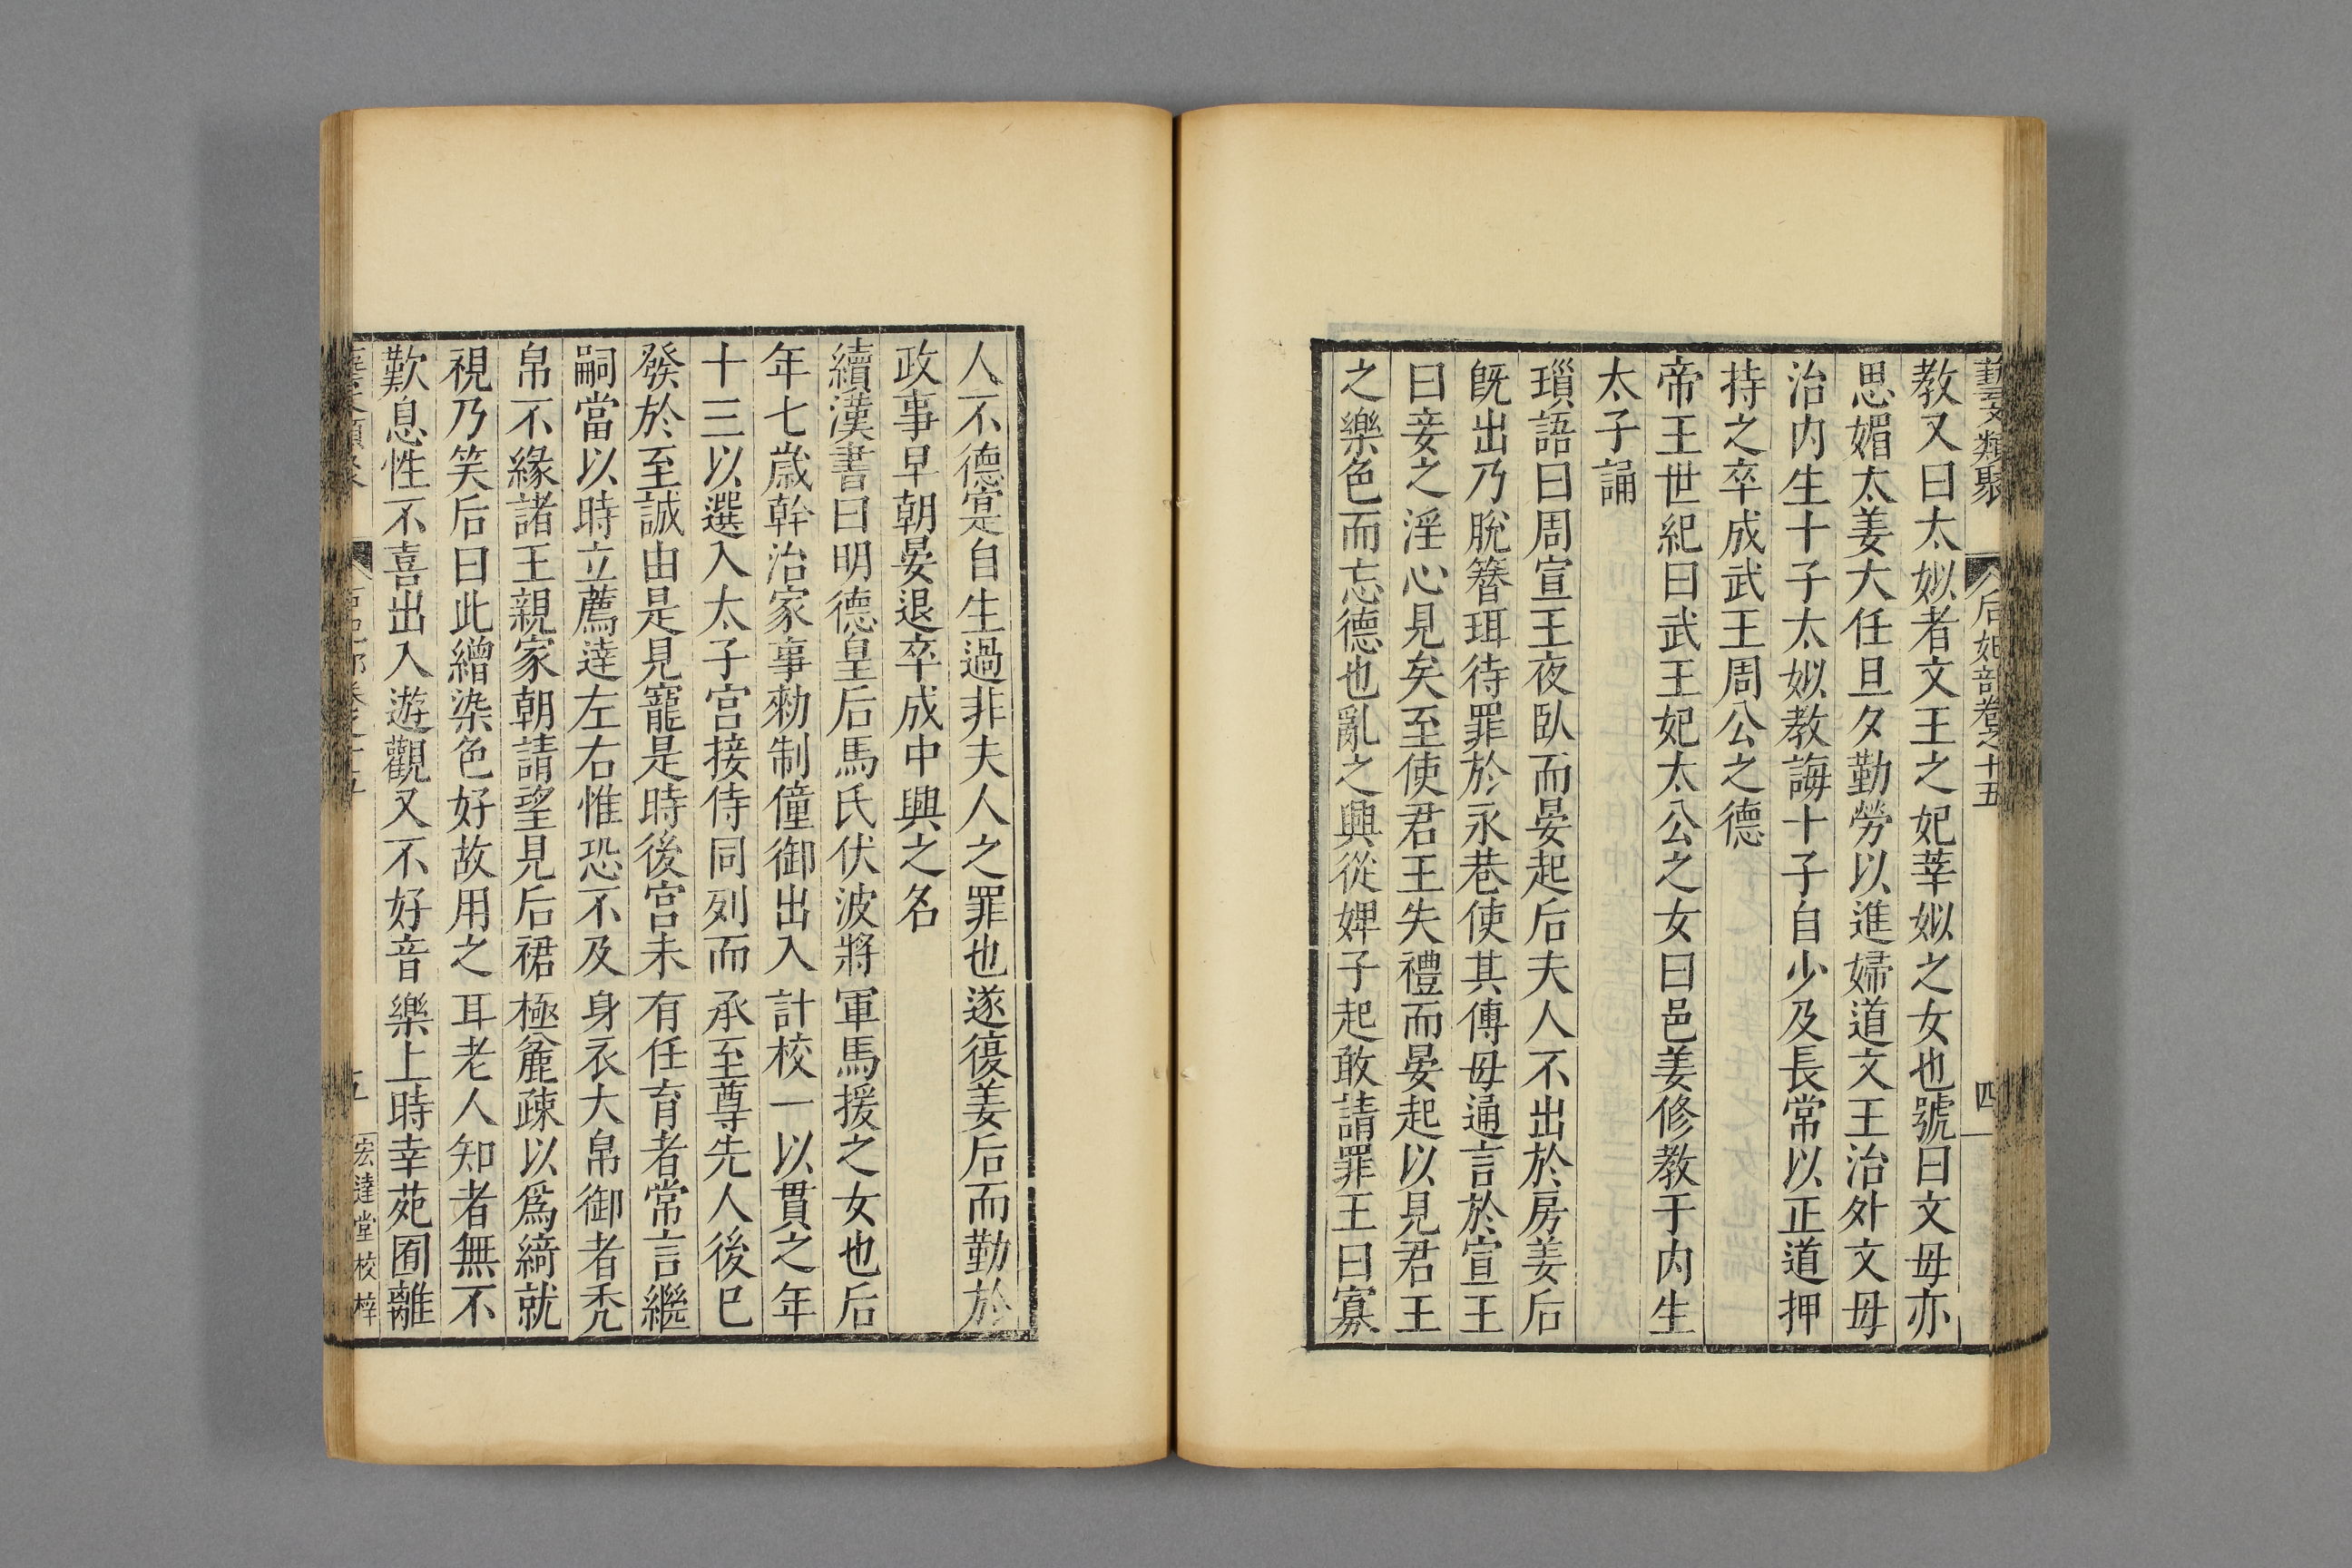 藝文類聚 后妃部卷之十五 四
教又曰太姒者文王之妃莘姒之女也號曰文母亦
思媚太姜大任旦夕勤勞以進婦道文王治外文母
治内生十子太姒教誨十子自少及長常以正道押
持之卒成武王周公之德
帝王世紀曰武王妃太公之女曰邑姜修教于内生
太子誦
瑣語曰周宣王夜臥而晏起后夫人不出於房姜后
旣出乃脫簪珥待罪於永巷使其傳母通言於宣王
曰妾之淫心見矣至使君王失禮而晏起以見君王
之樂色而忘德也亂之興從婢子起敢請罪王曰寡
人不德寔自生過非夫人之罪也遂復姜后而勤於
政事早朝晏退卒成中興之名
續漢書曰明德皇后馬氏伏波將軍馬援之女也后
年七歲幹治家事勑制僮御出入計校一以貫之年
十三以選入太子宮接侍同列而承至尊先人後已
發於至誠由是見寵是時後宮未有任育者常言繼
嗣當以時立薦達左右惟恐不及身衣大帛御者禿
帛不緣諸王親家朝請望見后裙極麄疎以爲綺就
視乃笑后曰此繒染色好故用之耳老人知者無不
歎息性不喜出入遊觀又不好音樂上時幸苑囿離
五 宏達堂校梓